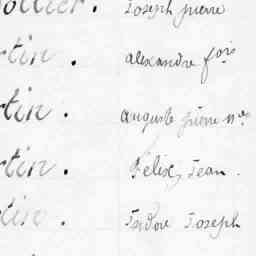 ollier. Joseph pierre
rtin. alexandre f.ois
rtin. auguste pierre n.as
rtin. Felix, Jean.
tin. Isidore Joseph